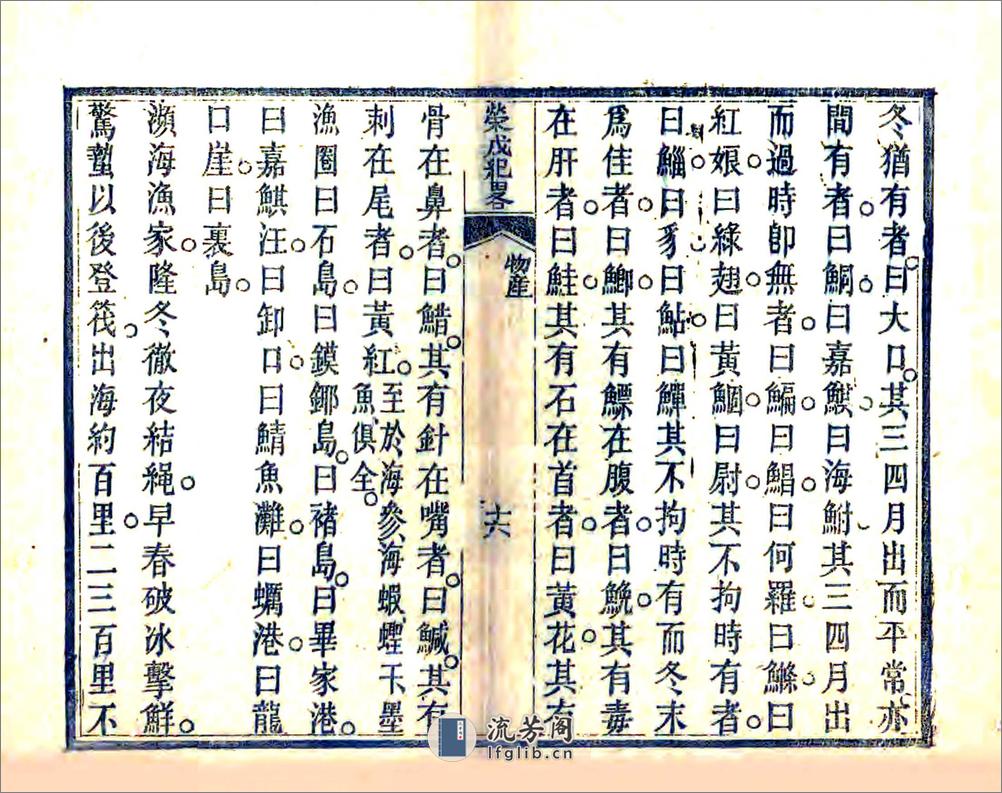 冬猶有者曰大口其三四月出而平常亦
間有者曰鮦曰嘉鰀曰海鮒其三四月出
而過時卽無者曰鯿曰鯧曰何羅曰鰷曰
紅娘曰綠翅曰黃鯝曰尉其不拘時有者
曰鯔曰豸曰鮎曰鱓其不拘時有而冬末
爲佳者曰鯽其有鰾在腹者曰鮸其有毒
在肝者曰鮭其有石在首者曰黃花其有
榮戍紀畧
物産
十六
骨在鼻者曰鱛其有針在嘴者曰鰔其有
刺在尾者曰黃紅至於海參海蝦蟶干墨魚俱全
漁圈曰石島曰鏌鋣島曰褚島曰畢家港
曰嘉鯕汪曰卸口曰鯖魚灘曰蠣港曰龍
口崖曰裏島
瀕海漁家隆冬徹夜結繩早春破冰擊鮮
驚蟄以後登筏出海約百里二三百里不
流芳阁
lfglib.cn